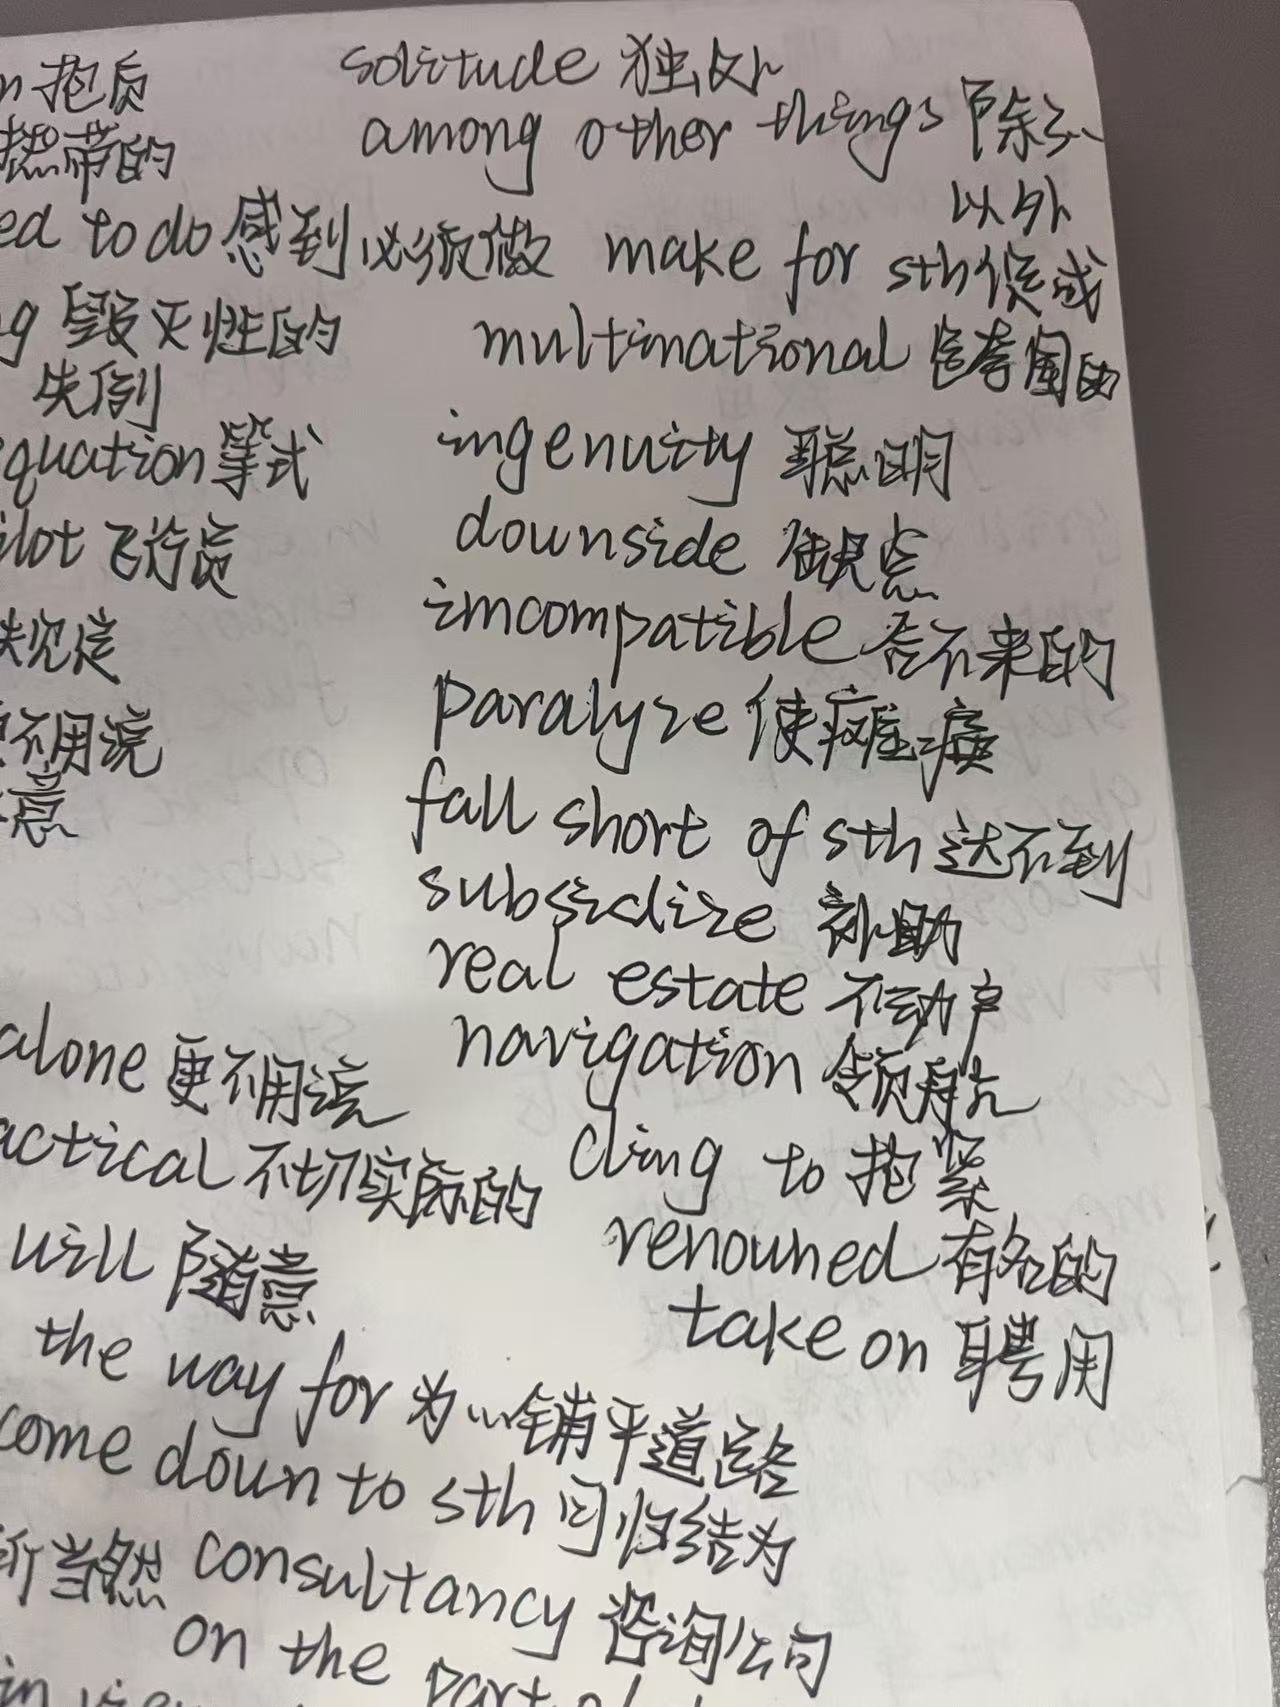 solitude 独处
抱负
among other things 除…
热带的
以外
ed to do 感到必须做
make for sth 促成
g 毁灭性的
multinational 的
失衡
ingenuity 聪明
quation 等式
downside 缺点
ilot 飞行员
imcompatible 合不来的
决定
paralyze 使瘫痪
不用说
fall short of sth 达不到
意
subsidize 补助
real estate 不动产
navigation 领航
alone 更不用说
cling to 抱紧
actical 不切实际的
renouned 有名的
will 随意
take on 聘用
the way for 为…铺平道路
come down to sth 可归结为
所当然 consultancy 咨询公司
on the part of
in view